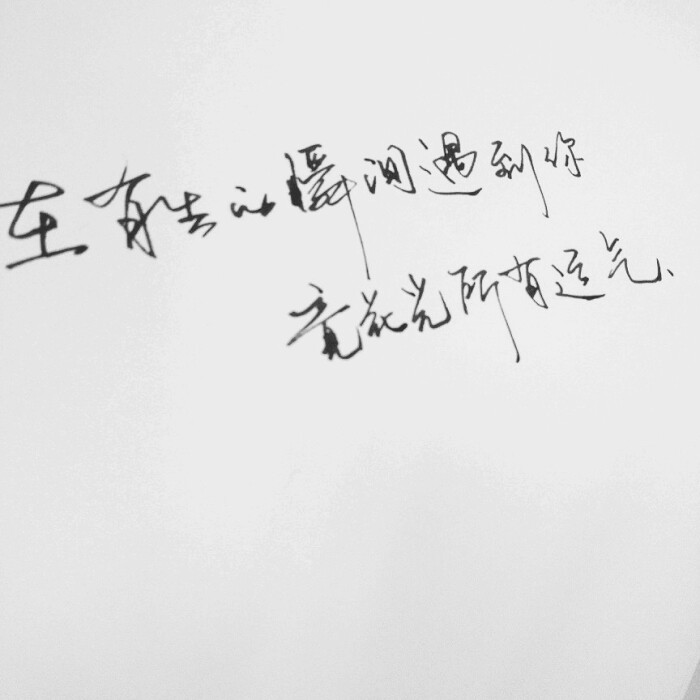 在有生的瞬间遇到你
竟花光所有运气